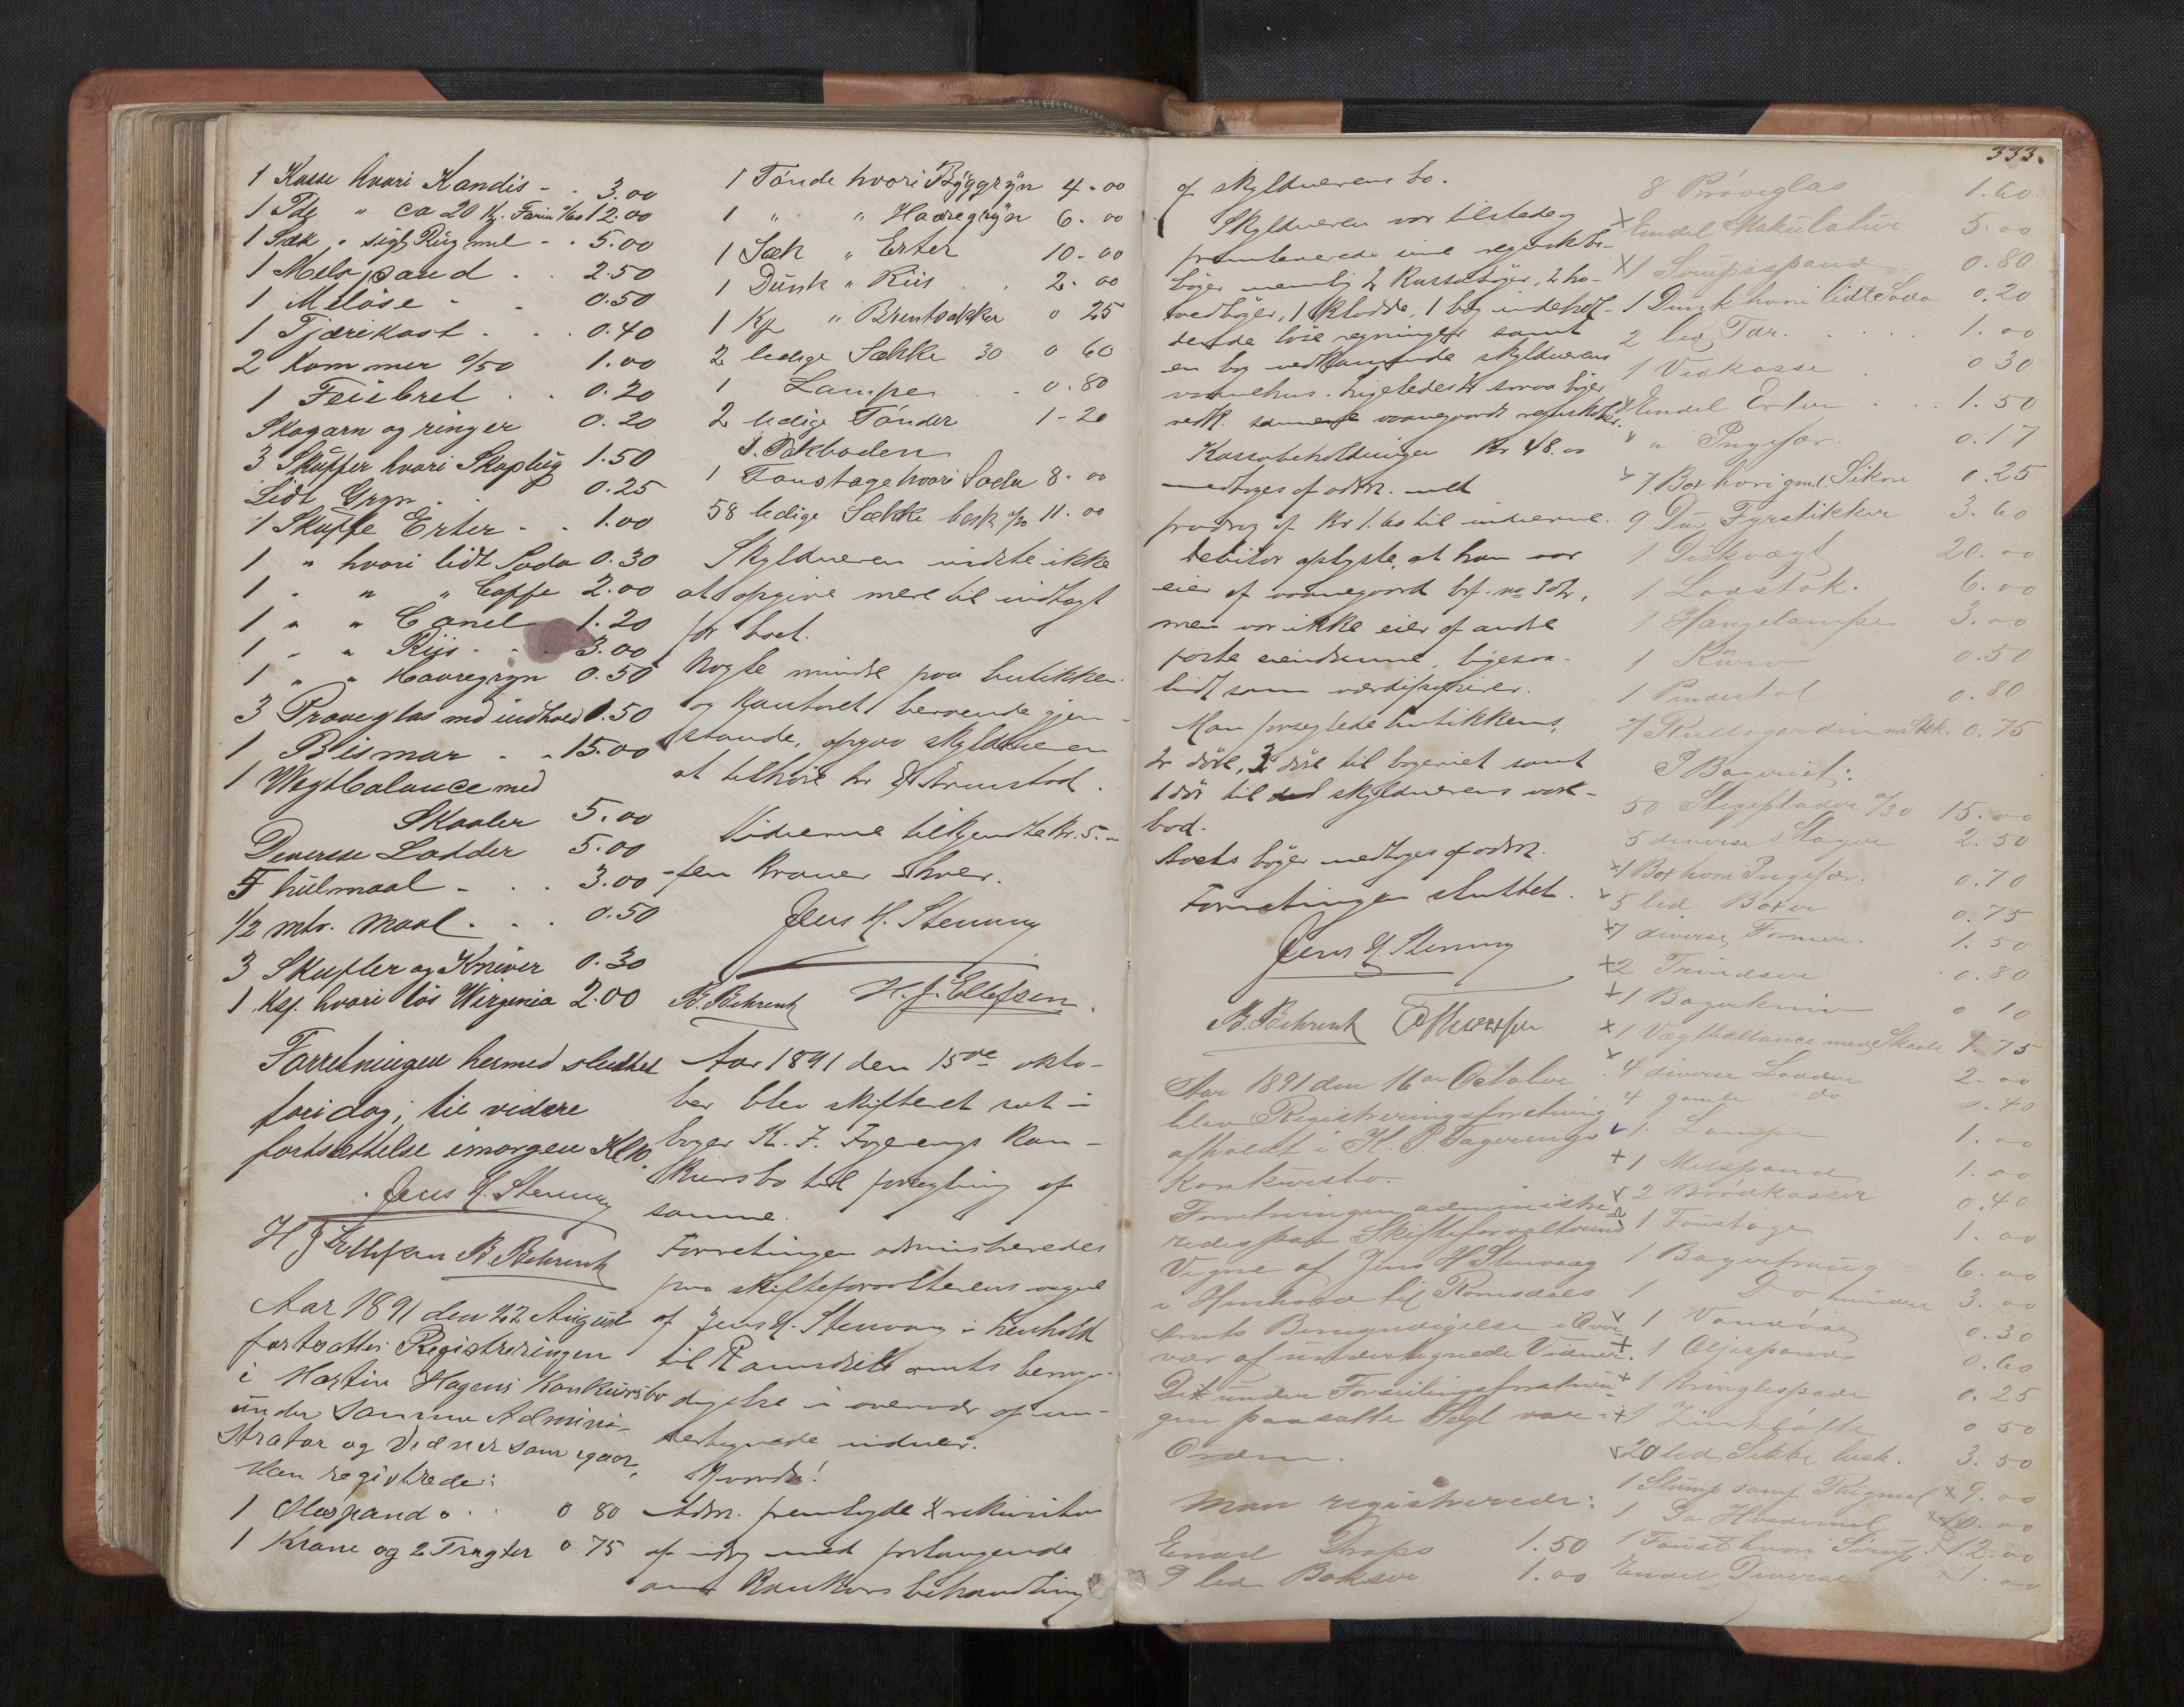 1 Kasse hvori Kandis - . 3.00
1 Tde " ca 20 Kg. Farin 12.00
1 Sæk " sigt Rugmel - . 5.00
1 Melspand . . 2.50
1 Meløse - . 0.50
1 Tjærekost . . . 0.40
2 Kommer 0/50 1.00
1 Feiebret . . 0.20
Skogarn og ringer 0.20
3 Skuffer hvori Skaptøig 1.50
Lidt Gryn . . 0.25
1 Skuffe Erter - . 1.00
1 " hvori lidt Soda 0.30
1 " " " Caffe 2.00
1 " " Canel 1.20
1 " " Riis - . . 3.00
1 " " Havregryn 0.50
3 Prøveglas md indhold 1.50
1 Bismar . . 15.00
1 Vegtbalance med
Skaaler 5.00
Deversse Lodder 5.00
5 hulmaal - . . 3.00
1/2 mtr. Maal . . . 0.50
3 Skufler og Kniver 0.30
1 Ksj. hvori løs Wirginia 2.00
Forretningen hermed sluttet
for idag; til videre
fortsættelse imorgen Kl 10.
Jens H. Stenvaag
H J Ellefsen B. Behrent
Aar 1891 den 22 August
fortsattes Registreringen
i Martin Hagens Konkursbo
under samme Admini-
strator og Vidner som igaar,
Man registrede:
1 Olespand . . 0 80
1 Krane og 2 Tragter 0 75
1 Tønde hvori Byggryn 4.00
1 " " Havregryn 6.00
1 Sæk " Erter 10.00
1 Dunk " Riis . . 2.00
1 Kp " Brentvakke 0 25
2 ledige Sække 30 0 60
1 Lampe . . 0.80
2 ledige Tønder 1-20
I Pakboden
1 Foustage hvori Soda 8.00
58 ledige Sække besk 11.00
Skyldneren vidste ikke
at opgive mere til indtægt
for boet.
Nogle mindre paa butikken
og Kontoret beroende gjen-
stande, opgav skyldneren
at tilhøre hr
Vidnerne tilkjendte Kr. 5.00
-fem Kroner hver.
Jens H. Stenvaag
B. Behrent H. J. Ellefsen.
Aar 1891 den 15de okto-
ber blev skifteret sat i
bager K. P. Fagerengs Kon-
kursbo til forsegling af
samme.
Forretningen administreredes
paa skifteforvalterens vegne
af Jens H. Stenvaag i henhold
til Romsdals amts bemyn-
digelse i overvær af un-
dertegnede vidner.
Hvorda!
Adm. fremlagde rekvisition
af idag med forlangende
om Konkursbehandling
333.
af skyldnerens bo.
Skyldneren var tilstede og
fremleverede sine regnskabs-
bøger nemlig 2 Kassabøger, 2 ho-
vedbøger, 1 Kladde, 1 bog indehol-
dende løse regninger samt
en bog vedkommende skyldnerens
vaanehus. Ligeledes 2 smaa bøger
vedk. samme vaanegaards regnskaber.
Kassabeholdningen Kr 48.00
medtoges af adm. med
fradrag af Kr 1.60 til vidnerne.
Debitor oplyste, at han var
eier af vaanegaard brf. no 302,
men var ikke eier af andre
faste eiendomme, ligesaa-
lidt som værdipapirer.
Man forseglede butikkens,
2 døre, 3 døre til bageriet samt
1 dør til skyldnerens ved-
bod.
Boets bøger medtoges af adm.
Forretningen sluttet.
Jens H. Stenvaag
B. Behrent
Aar 1891 den 16de October
blev Registreringsforretning
afholdt i K. P. Fagerengs
Konkursbo.
Forretningen administre-
redes paa Skifteforvalterens
Vegne af Jens H Stenvaag
i Henhold til Romsdals
Amts Bemyndigelse i Over-
vær af undertegnede Vidner.
De under Forseilingsforretnin-
gen paasatte Segl var i
Orden.
Man registrerede:
Endel Drops 1.50
9 led Bokser 1.00
8 Prøveglas 1.60
x Endel Makulatur 5.00
x 1 Sirupsspand 0.80
1 Dunk hvori lidt Soda 0.20
2 led Tdr. . . . 1.00
1 Vedkasse . 0 30
x Endel Erter . . . 1.50
" " Ingefær. 0.17
7 Box hvori gml. Sikore 0.25
9 Dus Fyrstikker 3.60
1 Diskvægt 20.00
1 Lodstok. 6.00
1 Hængelampe 3.00
1 Kurv 0.50
1 Pindestol 0.80
7 Rullegardin m Stk. 0.75
I Bageriet:
50 Stegeplader 0/30 15.00
5 diverse Stager 2.50
x 1 Box hvori Ingefær. 0.70
x 5 led Boxer 0.75
x 7 diverse Former. 1.50
x 2 Trindser 0.80
x 1 Bagerkniv 0 10
x 1 Vægtballance med Skaale 1.75
x 4 diverse Lodder 2.00
4 gamle do 0.40
1 Lampe 1.00
x 1 Melspand 1.00
x 2 Brødkasser 0.40
x 1 Foustage 1.00
1 Bagertraug 6.00
1 Do mindre 3.00
x 1 Vandøse 0.30
x 1 Oljespand 0.60
x 1 Kringlespade 0.25
x 1 Zinkbøtte 0 50
20 led. Sække besk. 3.50
1 Slump sam. Rugmel x 9.00
1 Do Hvedemel x 10.00
1 Foust hvori Sirup. x 12.00
Endel Diverse x 1.00